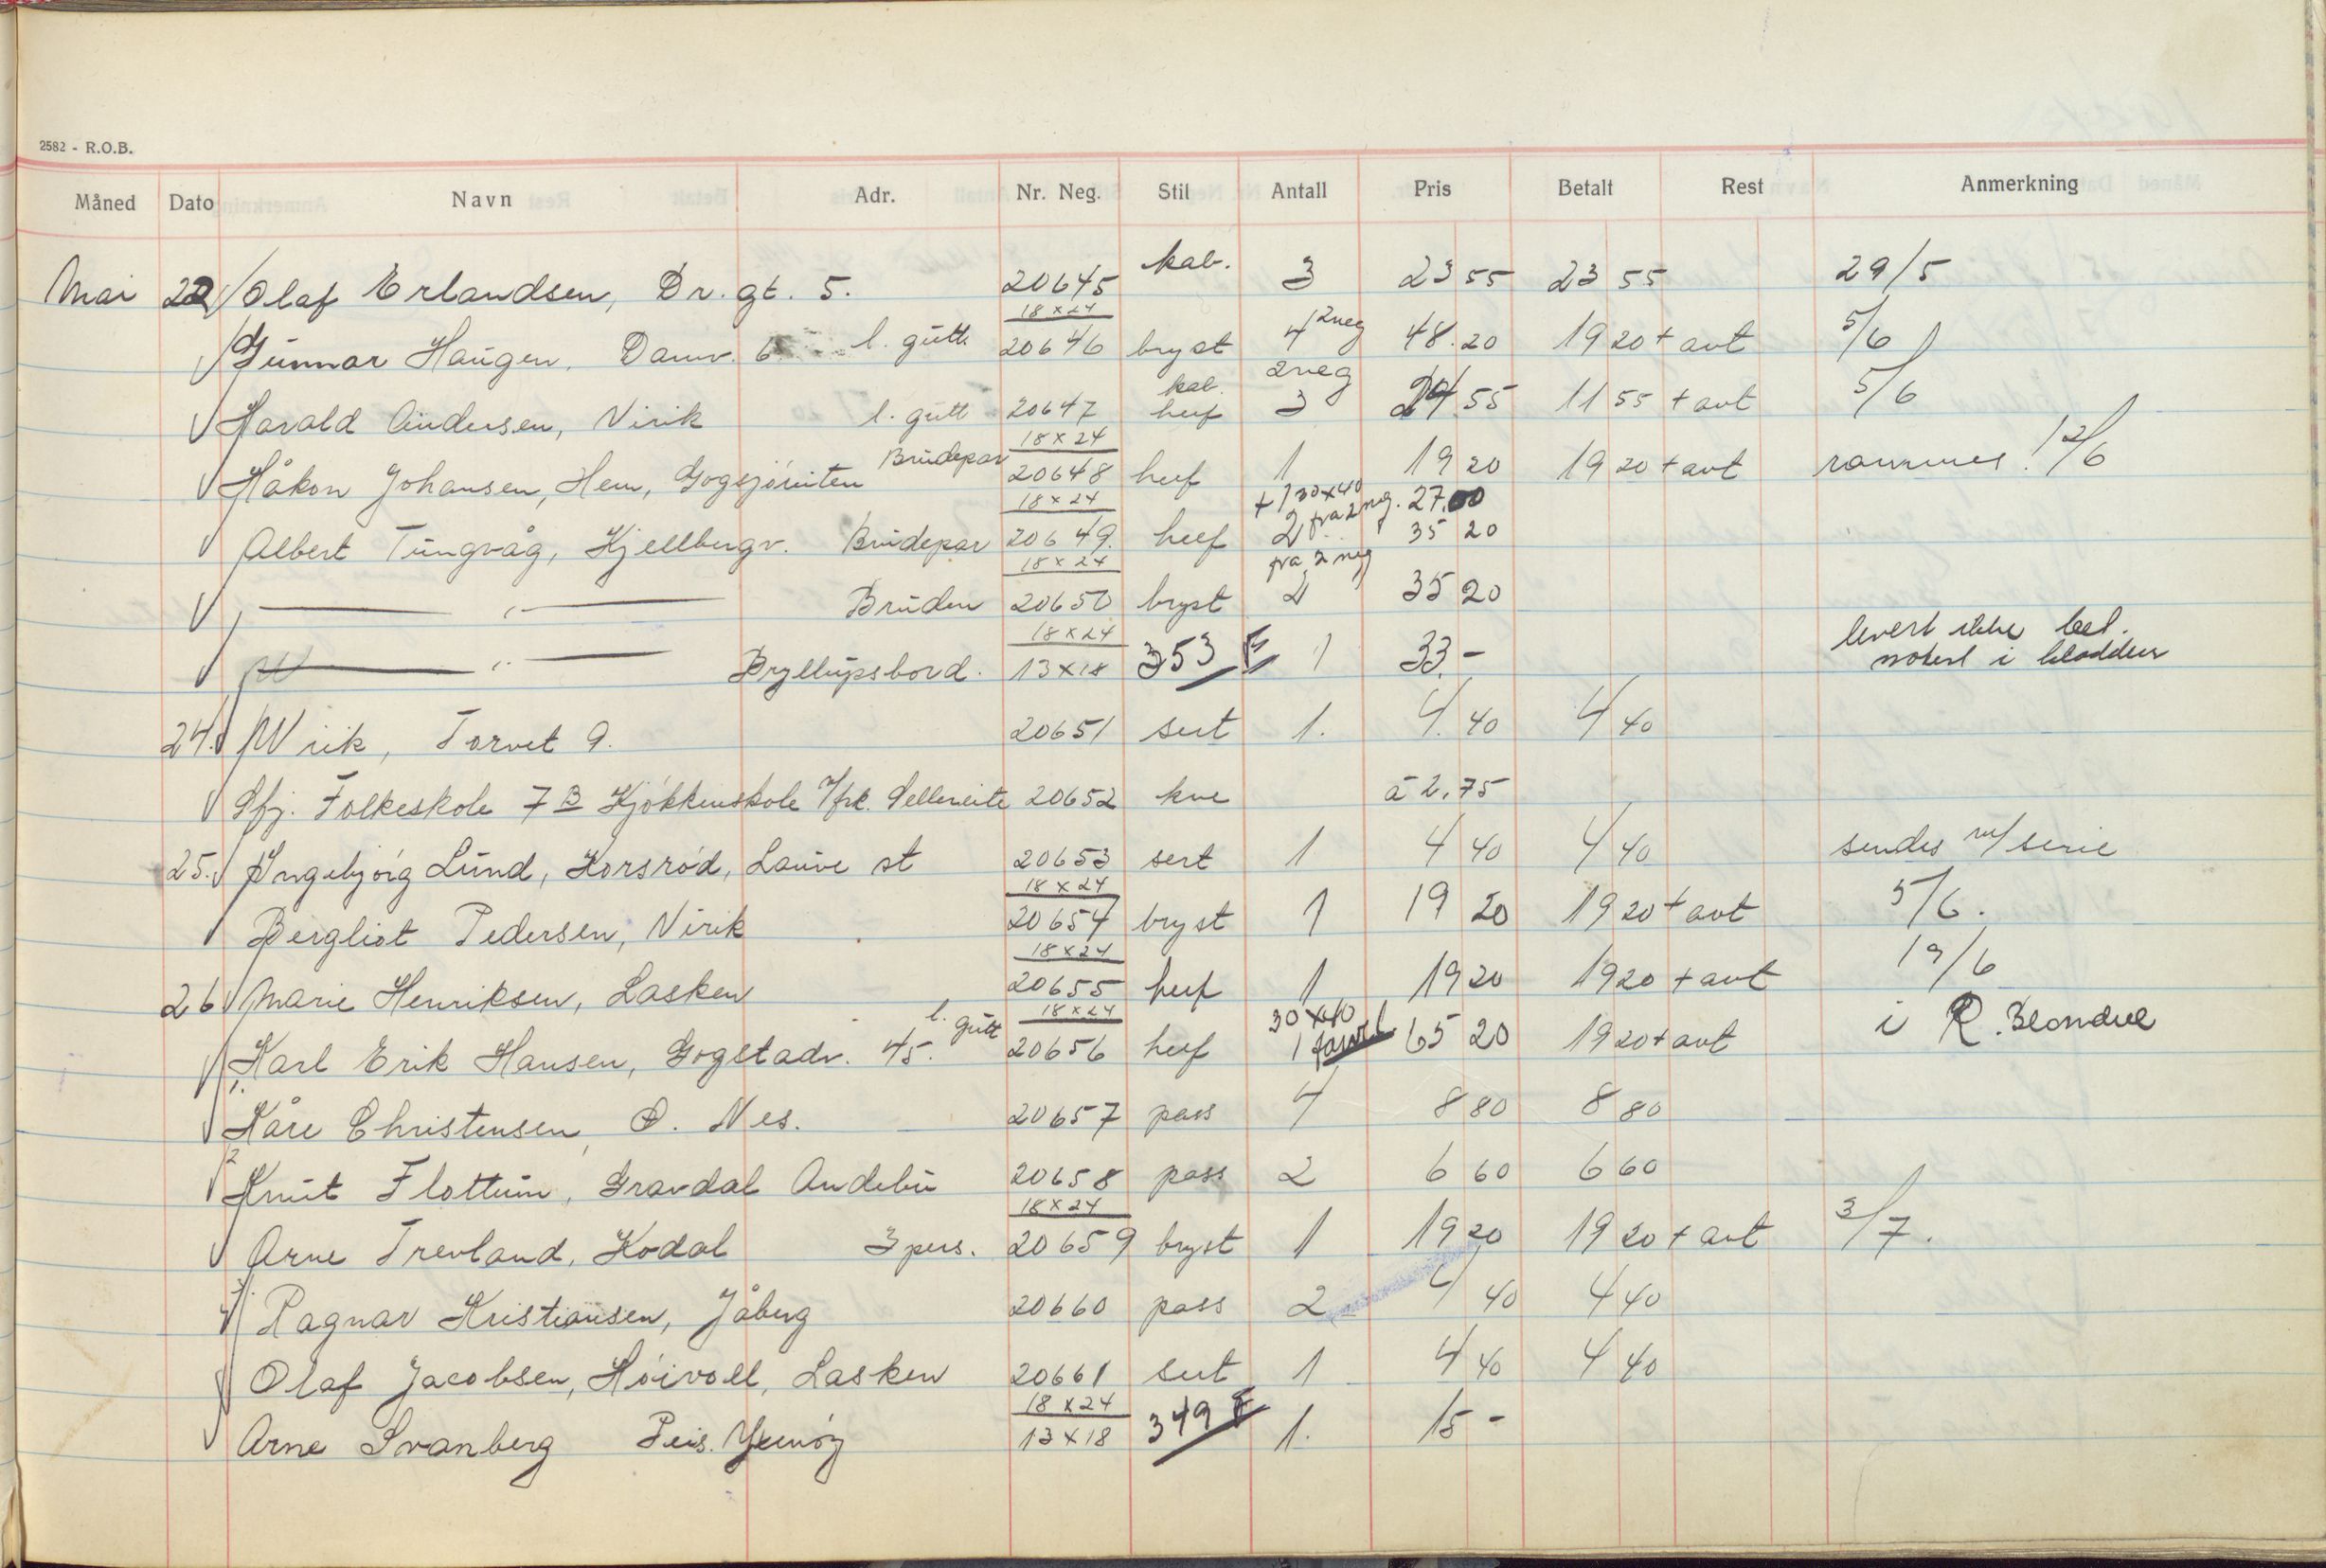 2582 - R.O.B.
Måned Dato Navn Adr. Nr. Neg. Stil Antall Pris Betalt Rest Anmerkning
Mai 22 Olaf Erlandsen, Dr. gt. 5. 20645 kab. 3 23 55 23 55 29/5
18x24
Gunnar Haugen, Damv. 6 l. gutt 20646 bryst 4 2neg 48.20 19 20 + avt 5/6
Harald Andersen, Virik l. gutt 20647 kab. heef 3 2neg 24.55 11 55 + avt 5/6
18x24
Håkon Johansen, Hem, Gogsjøruten Brudepar 20648 heef 1 19 20 19 20 + avt rammes! 12/6
18x24 + 1 30x40 27.00
Albert Tungvåg, Kjellbergv. Brudepar 20649. heef 2 fra 2 neg. 35 20
18x24
— " — Bruden 20650 bryst 2 fra 2 neg 35 20
18x24
— " — Bryllupsbord. 13x18 353 1 33.- levert ikke bet.
notert i kladden
24. Wirik, Torvet 9. 20651 sert 1. 4.40 4 40
Sfj. Folkeskole 7 B Kjøkkenskole 20652 kve à 2.75
25. Ingebjørg Lund, Korsrød, Lauve st 20653 sert 1 4 40 4 40 sendes m/ serie
18x24
Bergliot Pedersen, Virik 20654 bryst 1 19 20 19 20 + avt 5/6.
18x24
26 Marie Henriksen, Lasken 20655 heef 1 19 20 19 20 + avt 19/6
18x24 30x40
Karl Erik Hansen, Gogstadv. 45. l. gutt 20656 heef 1 65 20 19 20 + avt i R.
1. Kåre Christensen, Ö. Nes. 20657 pass 4 8 80 8 80
2 Knut Flottum, Gravdal Andebu 20658 pass 2 6 60 6 60
18x24
Arne Trevland, Kodal 3 pers. 20659 bryst 1 19 20 19 20 + avt 3/7.
3. Ragnar Kristiansen, Jåberg 20660 pass 2 4 40 4 40
Olaf Jacobsen, Høivoll, Lasken 20661 sert 1 4 40 4 40
18x24
Arne Svanberg 13x18 349 1. 15 -